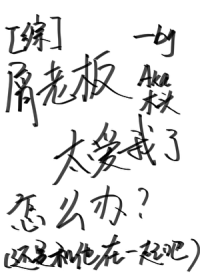 [综]
屑老板
太爱我了
怎么办？
(还是和他在一起吧)
—by
Aka
木头